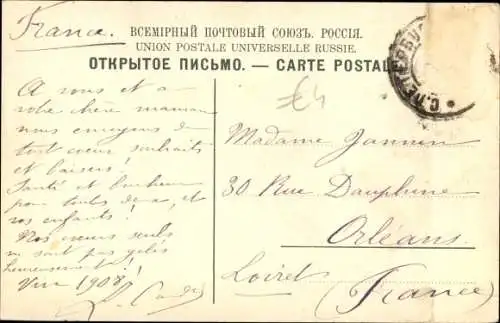 France.
ВСЕМІРНЫЙ ПОЧТОВЫЙ СОЮЗЪ. РОССІЯ.
UNION POSTALE UNIVERSELLE RUSSIE.
ОТКРЫТОЕ ПИСЬМО. — CARTE POSTALE
С.ПЕТЕРБУ
€4
A vous et a
votre chère maman
nous envoyons de
tout coeur souhaits
et baisers!
Santé et bonheur
pour toutes deux, et
vos enfants!
Nos coeurs seuls
ne sont pas gelés
heureusement!
Vive 1908!
Madame Jannin
30 Rue Dauphine
Orléans
Loiret (France)